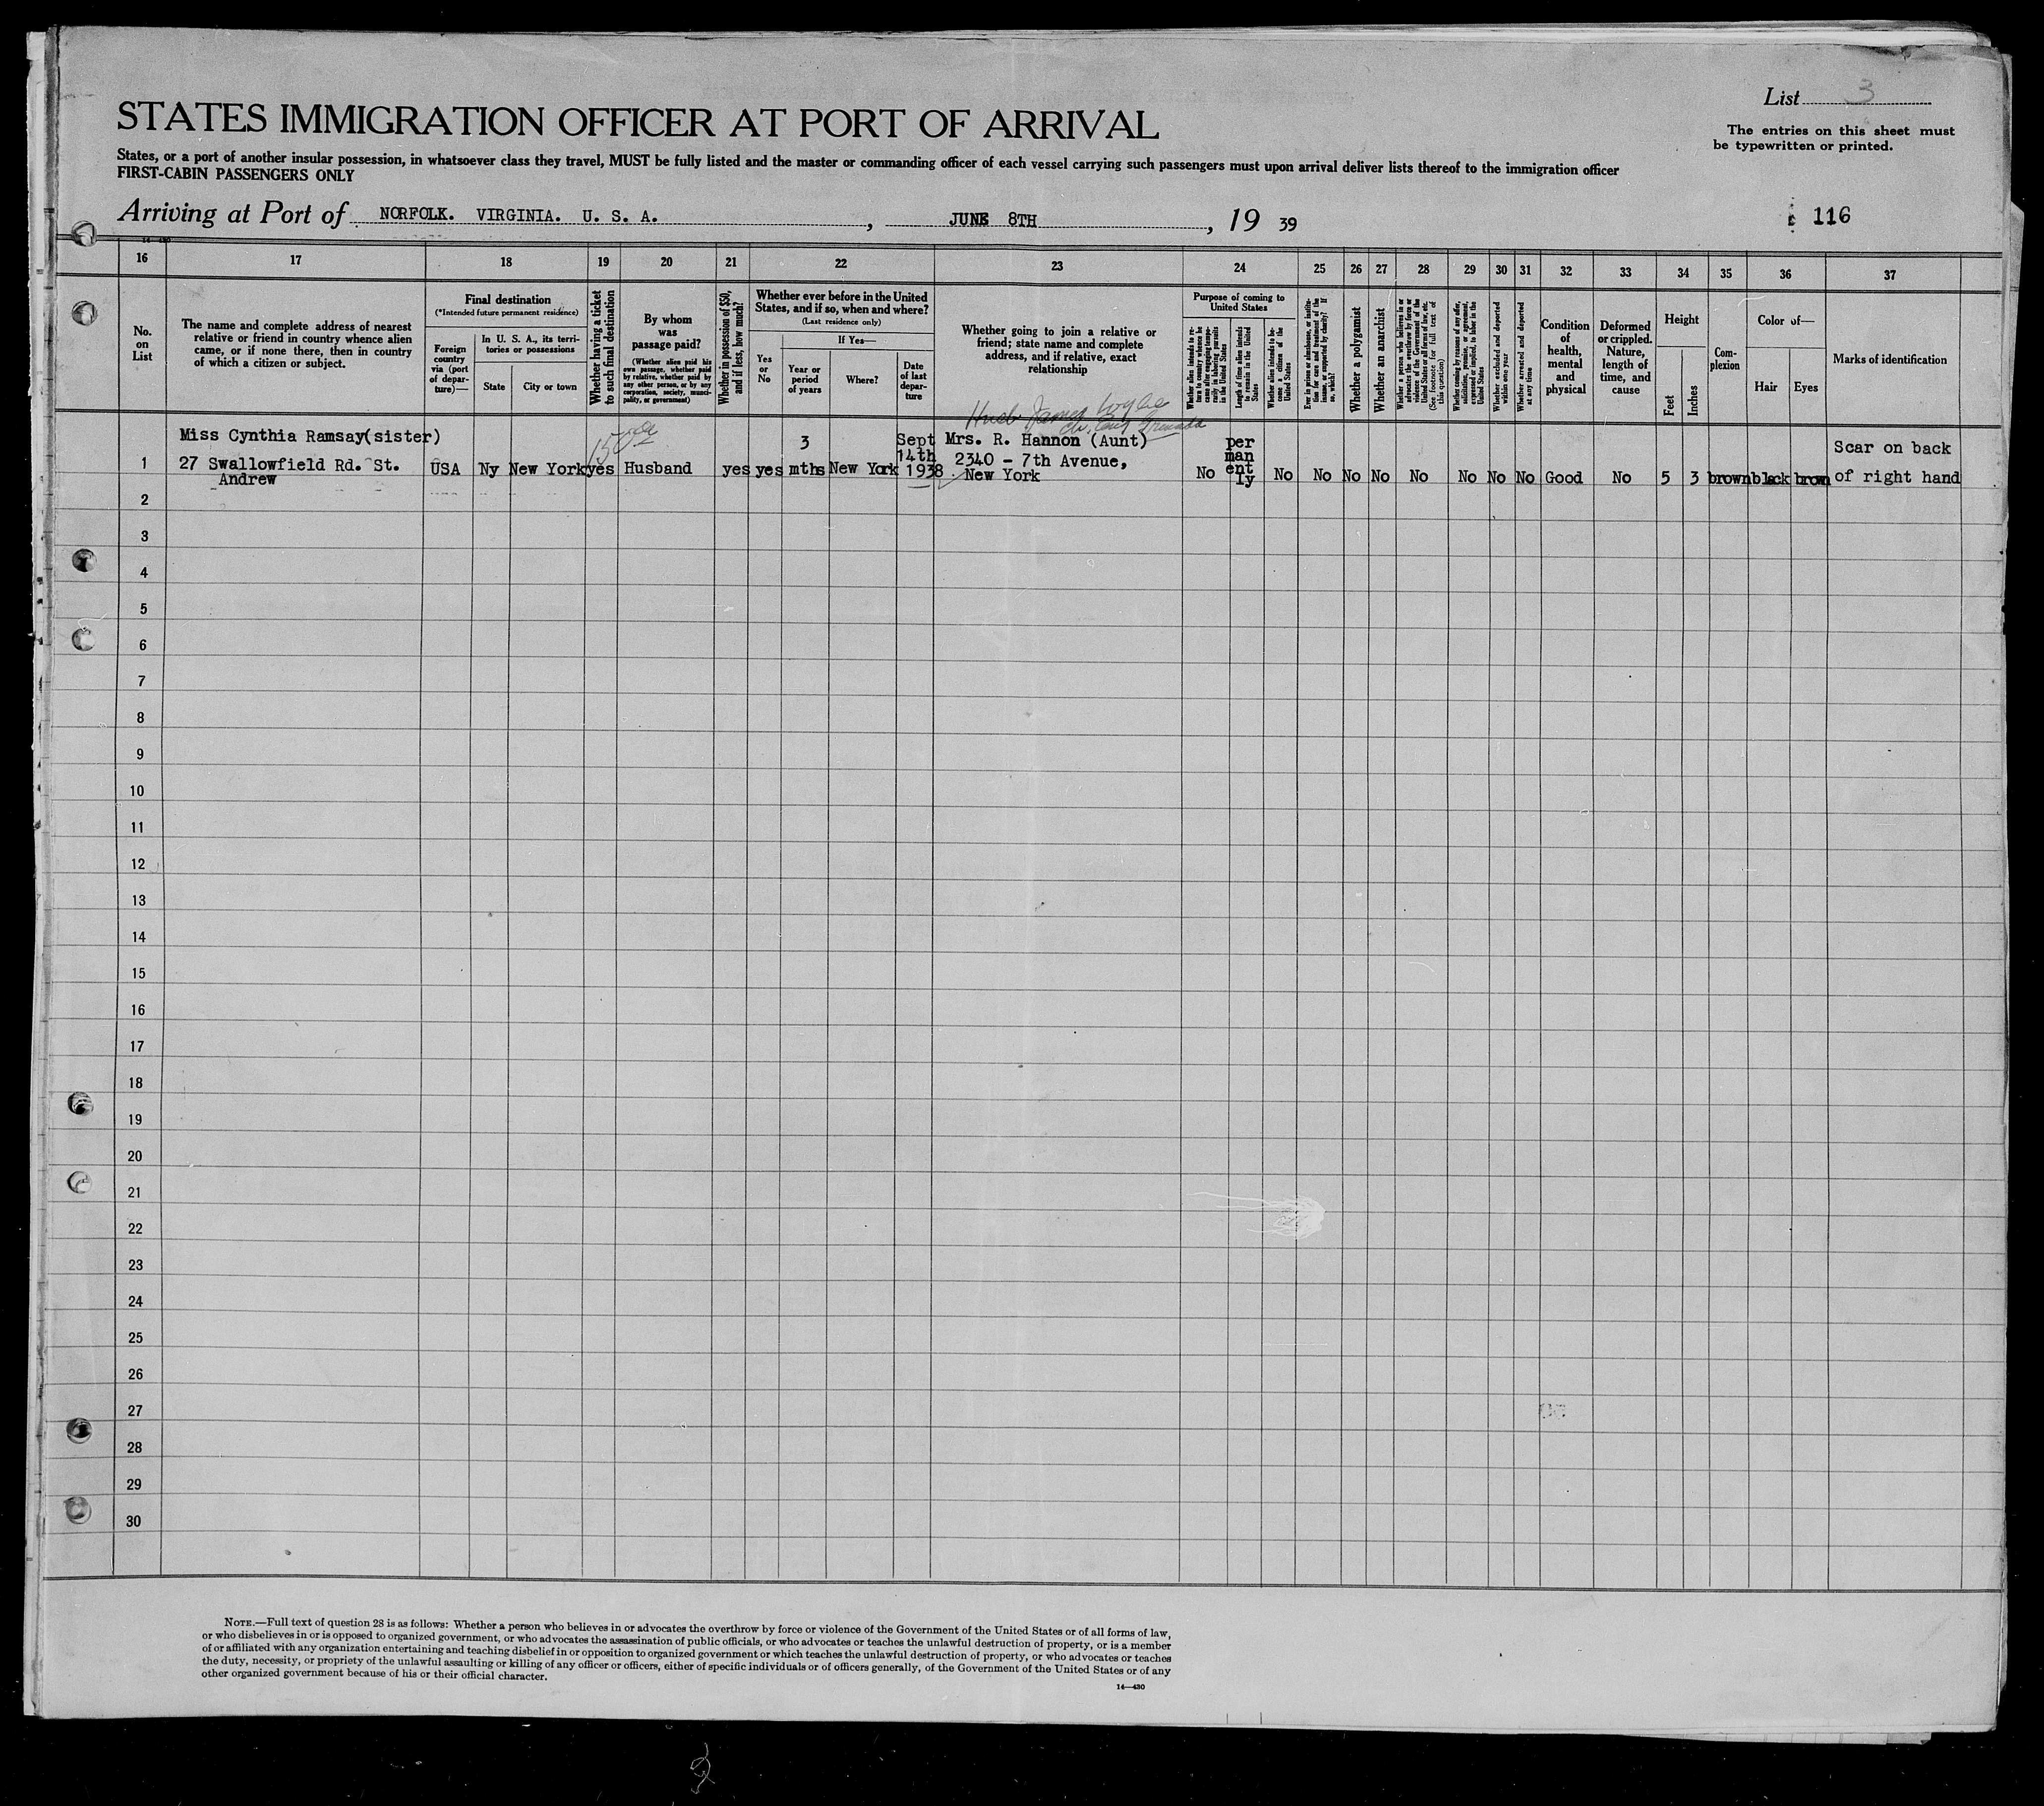 List 3
STATES IMMIGRATION OFFICER AT PORT OF ARRIVAL
The entries on this sheet must
be typewritten or printed.
States, or a port of another insular possession, in whatsoever class they travel, MUST be fully listed and the master or commanding officer of each vessel carrying such passengers must upon arrival deliver lists thereof to the immigration officer
FIRST-CABIN PASSENGERS ONLY
Arriving at Port of NORFOLK. VIRGINIA. U. S. A. , JUNE 8TH , 19 39
116
16 17 18 19 20 21 22 23 24 25 26 27 28 29 30 31 32 33 34 35 36 37
No.
on
List
The name and complete address of nearest
relative or friend in country whence alien
came, or if none there, then in country
of which a citizen or subject.
Final destination
(*Intended future permanent residence)
Foreign
country
via (port
of depar-
ture)—
In U. S. A., its terri-
tories or possessions
State
City or town
Whether having a ticket
to such final destination
By whom
was
passage paid?
(Whether alien paid his
own passage, whether paid
by relative, whether paid by
any other person, or by any
corporation, society, munici-
pality, or government)
Whether in possession of $50,
and if less, how much?
Whether ever before in the United
States, and if so, when and where?
(Last residence only)
Yes
or
No
If Yes—
Year or
period
of years
Where?
Date
of last
depar-
ture
Whether going to join a relative or
friend; state name and complete
address, and if relative, exact
relationship
Purpose of coming to
United States
Whether alien intends to re-
turn to country whence he
came after engaging tempo-
rarily in laboring pursuits
in the United States
Length of time alien intends
to remain in the United
States
Whether alien intends to be-
come a citizen of the
United States
Ever in prison or almshouse, or institu-
tion for care and treatment of the
insane, or supported by charity? If
so, which?
Whether a polygamist
Whether an anarchist
Whether a person who believes in or
advocates the overthrow by force or
violence of the Government of the
United States or all forms of law, etc.
(See footnote for full text of
this question)
Whether coming by reason of any offer,
solicitation, promise, or agreement,
expressed or implied, to labor in the
United States
Whether excluded and deported
within one year
Whether arrested and deported
at any time
Condition
of
health,
mental
and
physical
Deformed
or crippled.
Nature,
length of
time, and
cause
Height
Feet
Inches
Com-
plexion
Color of—
Hair
Eyes
Marks of identification
James
Grenada
150
Miss Cynthia Ramsay(sister)
27 Swallowfield Rd. St.
Andrew
USA Ny New York yes Husband yes yes
3
mths New York
Sept
14th
1938
Mrs. R. Hannon (Aunt)
2340 - 7th Avenue,
New York
No
per
man
ent
ly
No No No No No No No No Good No 5 3 brown black brown
Scar on back
of right hand
1
2
3
4
5
6
7
8
9
10
11
12
13
14
15
16
17
18
19
20
21
22
23
24
25
26
27
28
29
30
NOTE.—Full text of question 28 is as follows: Whether a person who believes in or advocates the overthrow by force or violence of the Government of the United States or of all forms of law,
or who disbelieves in or is opposed to organized government, or who advocates the assassination of public officials, or who advocates or teaches the unlawful destruction of property, or is a member
of or affiliated with any organization entertaining and teaching disbelief in or opposition to organized government or which teaches the unlawful destruction of property, or who advocates or teaches
the duty, necessity, or propriety of the unlawful assaulting or killing of any officer or officers, either of specific individuals or of officers generally, of the Government of the United States or of any
other organized government because of his or their official character.
14—430